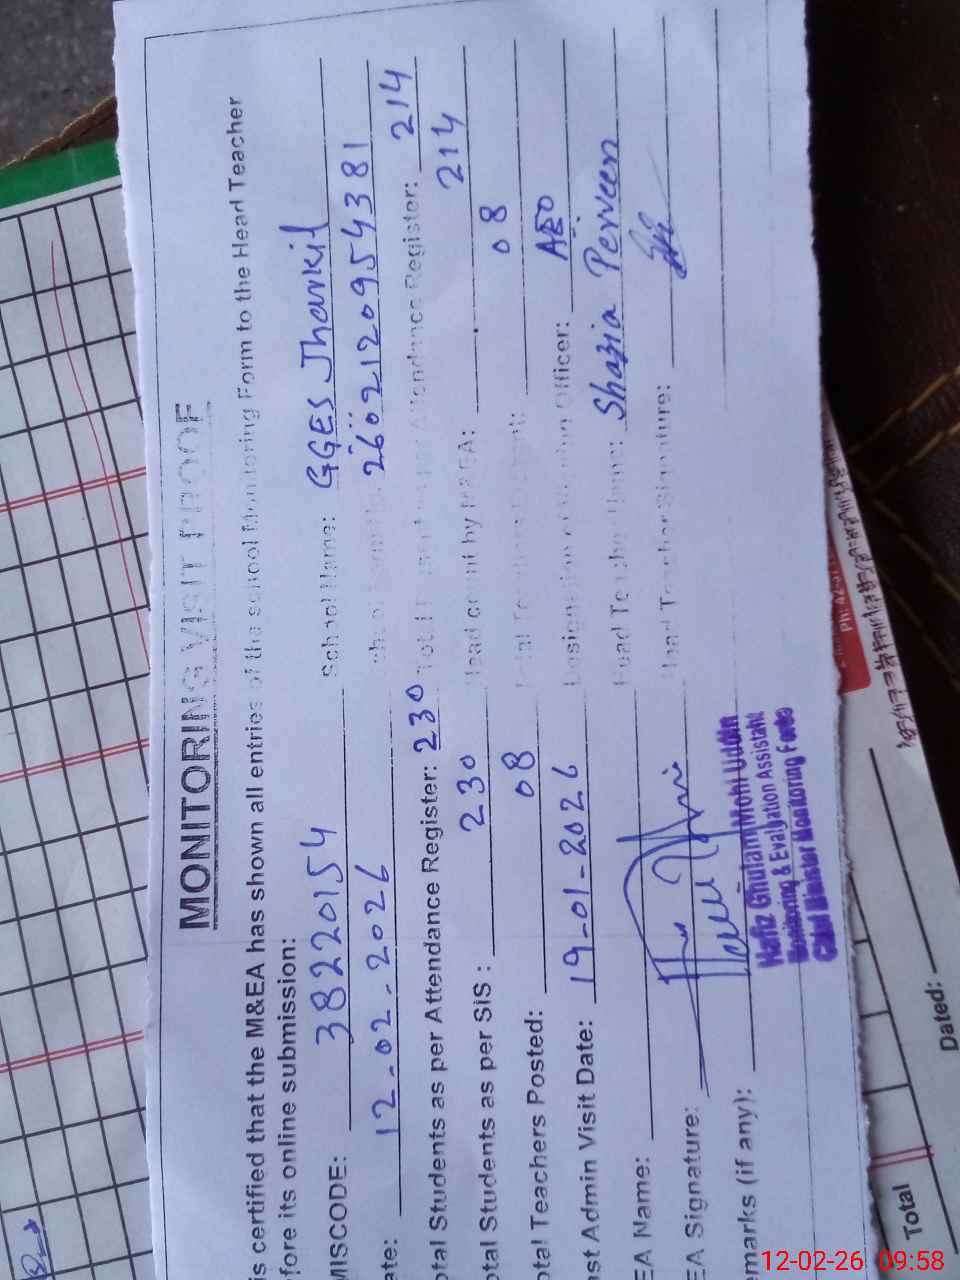 MONITORING VISIT PROOF
is certified that the M&EA has shown all entries of the school Monitoring Form to the Head Teacher
fore its online submission:
MISCODE: 38220154 School Name: GGES Jharkil
ate: 12-02-2026 2602120954381
otal Students as per Attendance Register: 230 Attendance Register: 214
otal Students as per SIS: 230 Head count by M&EA: 214
otal Teachers Posted: 08 08
ast Admin Visit Date: 19-01-2026 Designation of Visiting Officer: AEO
EA Name: Head Teacher Name: Shazia Perveen
EA Signature: Head Teacher Signature:
emarks (if any):
Hafiz Ghulam Mohi Uddin
Monitoring & Evaluation Assistant
Chief Minister Monitoring Force
Total
Dated:
12-02-26 09:58